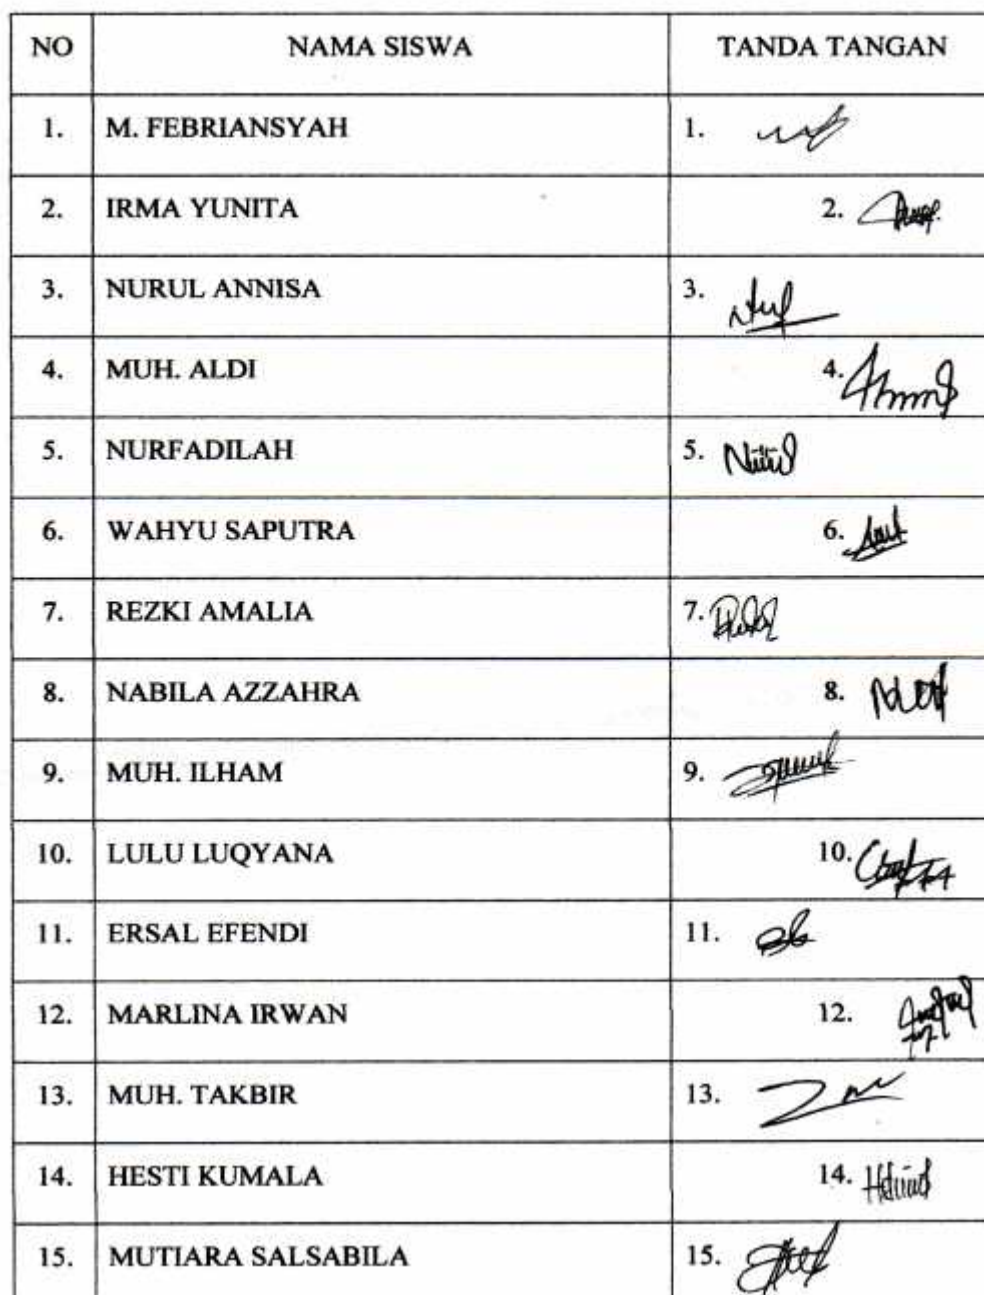 NO NAMA SISWA TANDA TANGAN
1. M. FEBRIANSYAH 1.
2. IRMA YUNITA 2.
3. NURUL ANNISA 3.
4. MUH. ALDI 4.
5. NURFADILAH 5.
6. WAHYU SAPUTRA 6.
7. REZKI AMALIA 7.
8. NABILA AZZAHRA 8.
9. MUH. ILHAM 9.
10. LULU LUQYANA 10.
11. ERSAL EFENDI 11.
12. MARLINA IRWAN 12.
13. MUH. TAKBIR 13.
14. HESTI KUMALA 14.
15. MUTIARA SALSABILA 15.